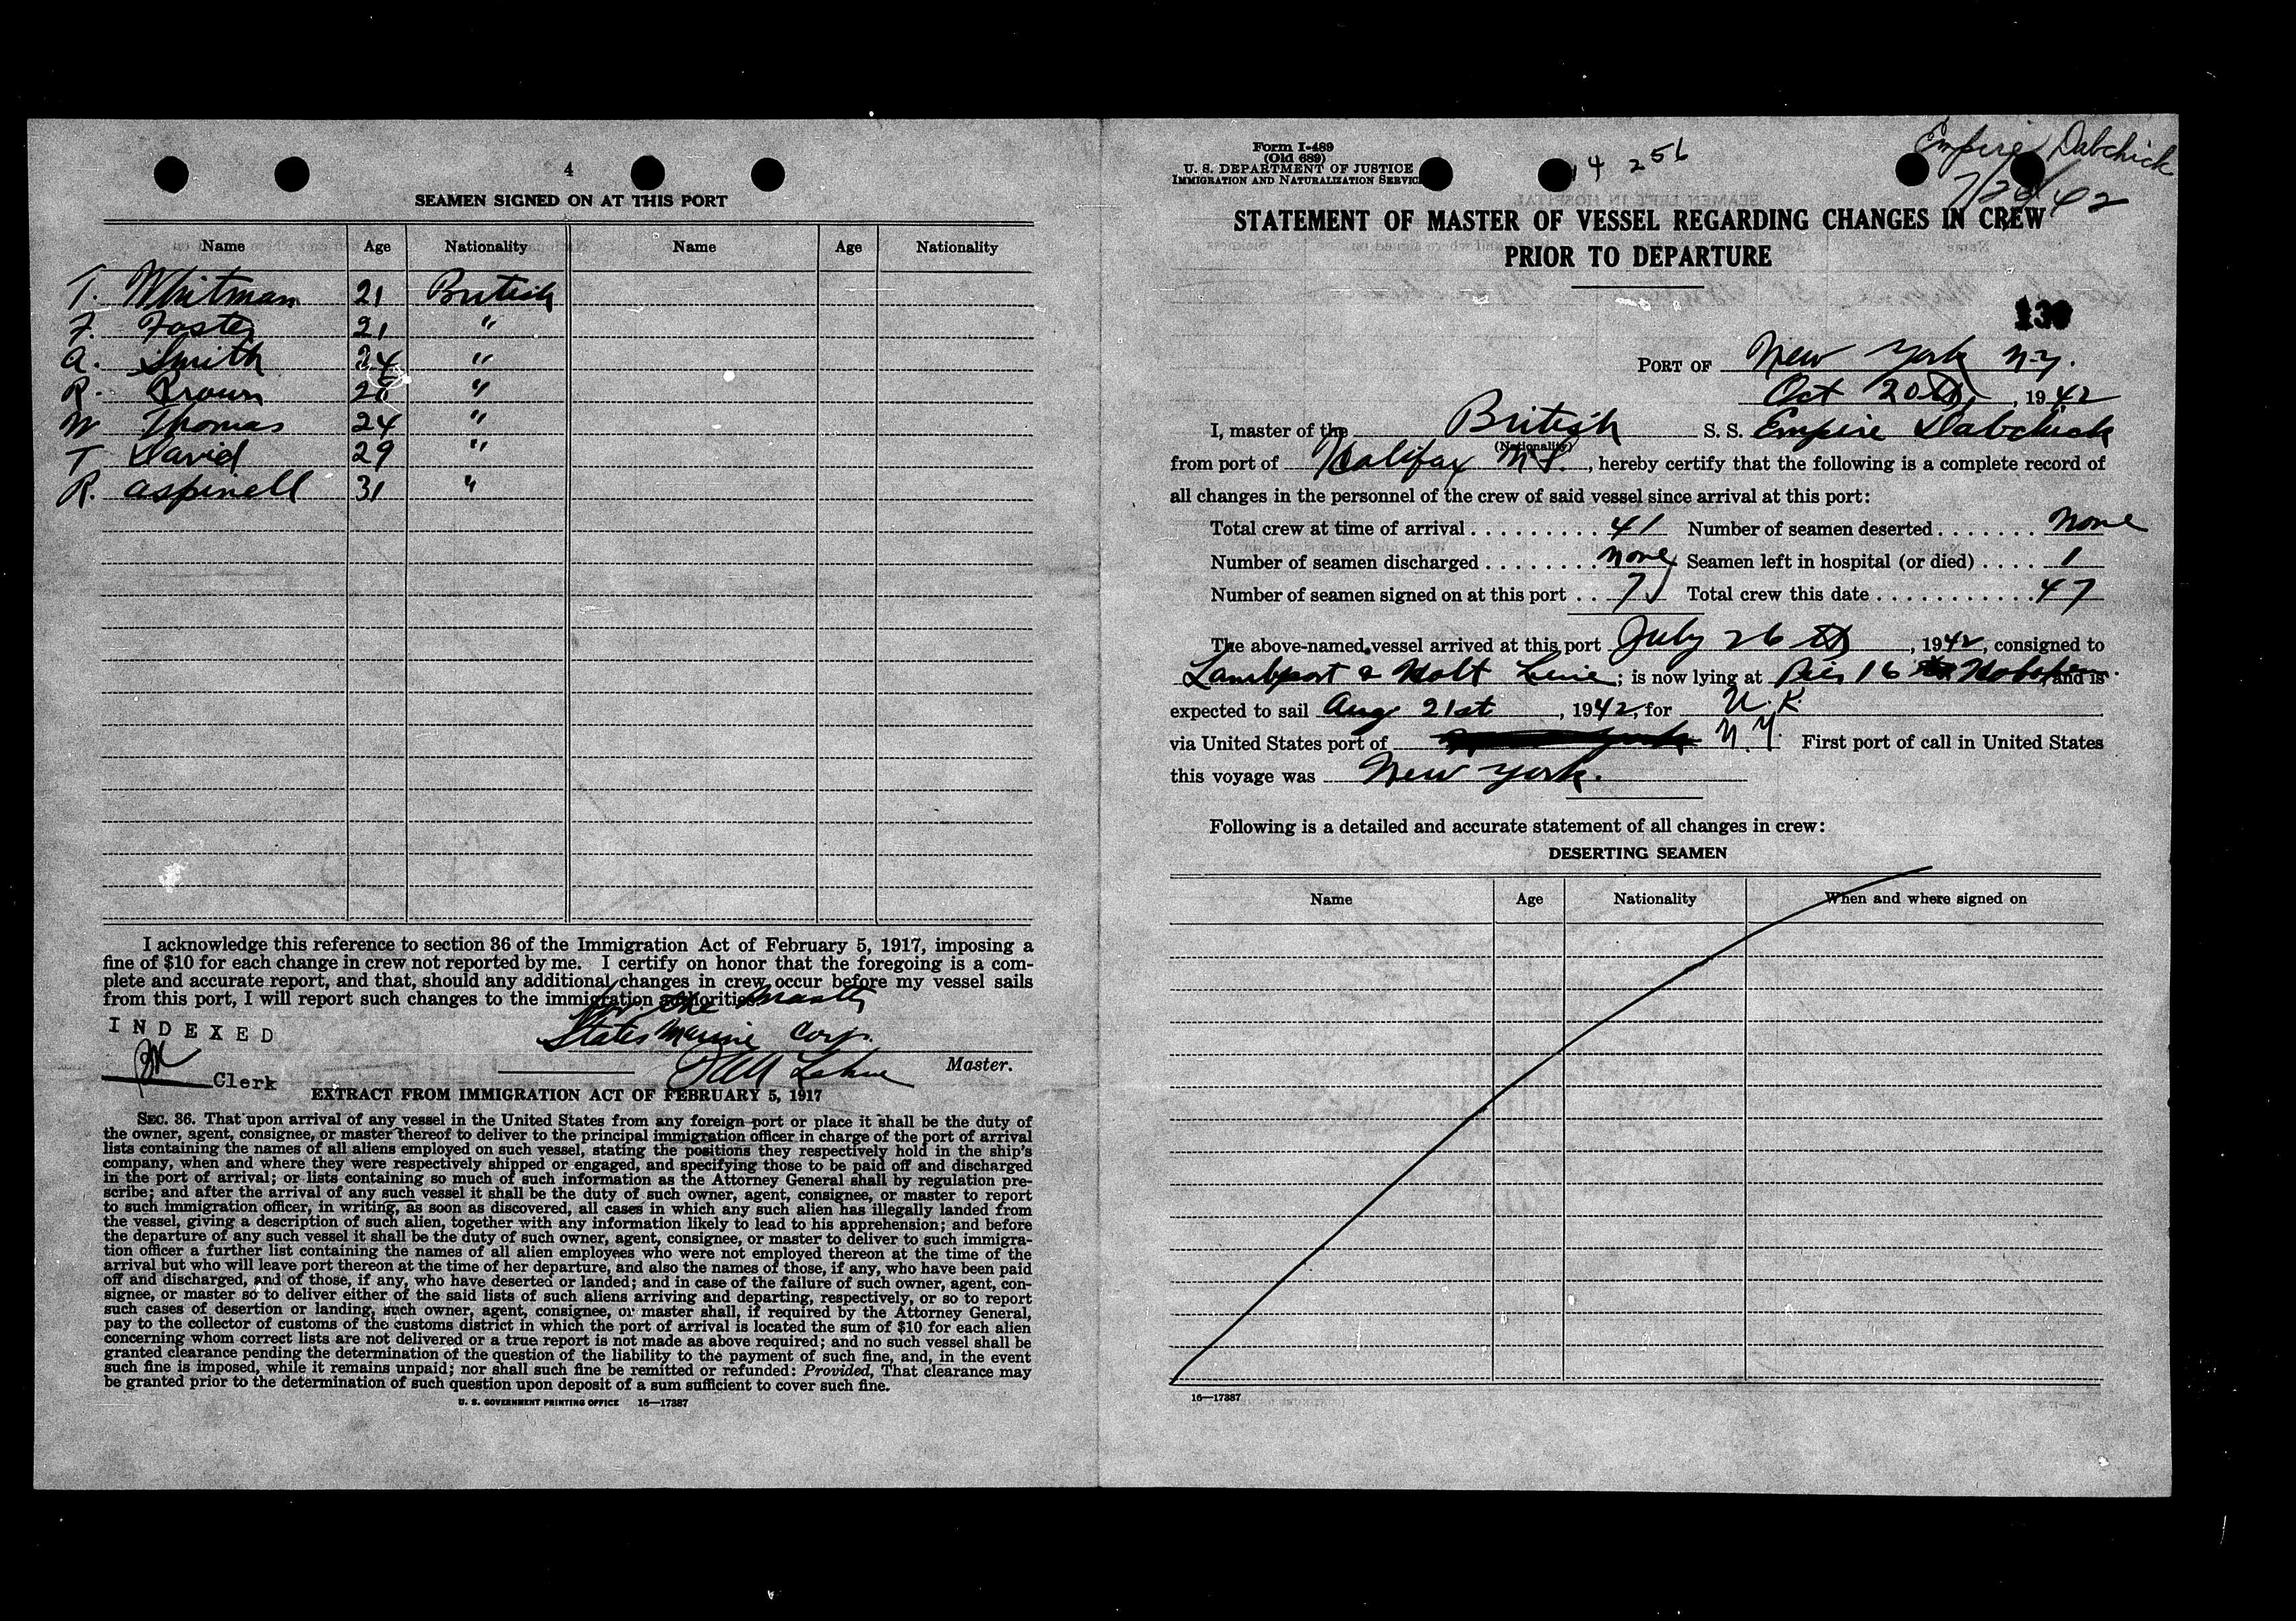 4
SEAMEN SIGNED ON AT THIS PORT
Name Age Nationality Name Age Nationality
T. Whitman 21 British
F. Foster 21 "
A. Smith 24 "
R. Brown "
W Thomas 24 "
T David 29 "
R. Aspinell 31 "
I acknowledge this reference to section 36 of the Immigration Act of February 5, 1917, imposing a
fine of $10 for each change in crew not reported by me. I certify on honor that the foregoing is a com-
plete and accurate report, and that, should any additional changes in crew occur before my vessel sails
from this port, I will report such changes to the immigration authorities.
For the Master
States Marine Corp.
INDEXED
Master.
Clerk
EXTRACT FROM IMMIGRATION ACT OF FEBRUARY 5, 1917
SEC. 36. That upon arrival of any vessel in the United States from any foreign port or place it shall be the duty of
the owner, agent, consignee, or master thereof to deliver to the principal immigration officer in charge of the port of arrival
lists containing the names of all aliens employed on such vessel, stating the positions they respectively hold in the ship's
company, when and where they were respectively shipped or engaged, and specifying those to be paid off and discharged
in the port of arrival; or lists containing so much of such information as the Attorney General shall by regulation pre-
scribe; and after the arrival of any such vessel it shall be the duty of such owner, agent, consignee, or master to report
to such immigration officer, in writing, as soon as discovered, all cases in which any such alien has illegally landed from
the vessel, giving a description of such alien, together with any information likely to lead to his apprehension; and before
the departure of any such vessel it shall be the duty of such owner, agent, consignee, or master to deliver to such immigra-
tion officer a further list containing the names of all alien employees who were not employed thereon at the time of the
arrival but who will leave port thereon at the time of her departure, and also the names of those, if any, who have been paid
off and discharged, and of those, if any, who have deserted or landed; and in case of the failure of such owner, agent, con-
signee, or master so to deliver either of the said lists of such aliens arriving and departing, respectively, or so to report
such cases of desertion or landing, such owner, agent, consignee, or master shall, if required by the Attorney General,
pay to the collector of customs of the customs district in which the port of arrival is located the sum of $10 for each alien
concerning whom correct lists are not delivered or a true report is not made as above required; and no such vessel shall be
granted clearance pending the determination of the question of the liability to the payment of such fine, and, in the event
such fine is imposed, while it remains unpaid; nor shall such fine be remitted or refunded: Provided, That clearance may
be granted prior to the determination of such question upon deposit of a sum sufficient to cover such fine.
U. S. GOVERNMENT PRINTING OFFICE 16—17387
Form I-489
(Old 689)
U. S. DEPARTMENT OF JUSTICE
IMMIGRATION AND NATURALIZATION SERVICE
14 256
Empire Dabchick
STATEMENT OF MASTER OF VESSEL REGARDING CHANGES IN CREW
PRIOR TO DEPARTURE
PORT OF New York N.Y.
Oct 20th, 1942
I, master of the British S. S. Empire Dabchick
(Nationality)
from port of Halifax N.S., hereby certify that the following is a complete record of
all changes in the personnel of the crew of said vessel since arrival at this port:
Total crew at time of arrival . . . . . . . . . 41 Number of seamen deserted . . . . . . . none
Number of seamen discharged . . . . . . . . none Seamen left in hospital (or died) . . . . 1
Number of seamen signed on at this port . . 7 Total crew this date . . . . . . . . . . . 47
The above-named vessel arrived at this port July 26th, 1942, consigned to
Lamport & Holt Line; is now lying at Pier 16 Hoboken and is
expected to sail Aug 21st, 1942, for U.K.
via United States port of N.Y. First port of call in United States
this voyage was New York.
Following is a detailed and accurate statement of all changes in crew:
DESERTING SEAMEN
Name Age Nationality When and where signed on
16—17387